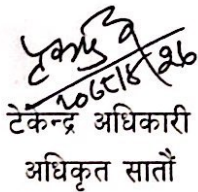 २०८१/४/२७
टेकेन्द्र अधिकारी
अधिकृत सातौं